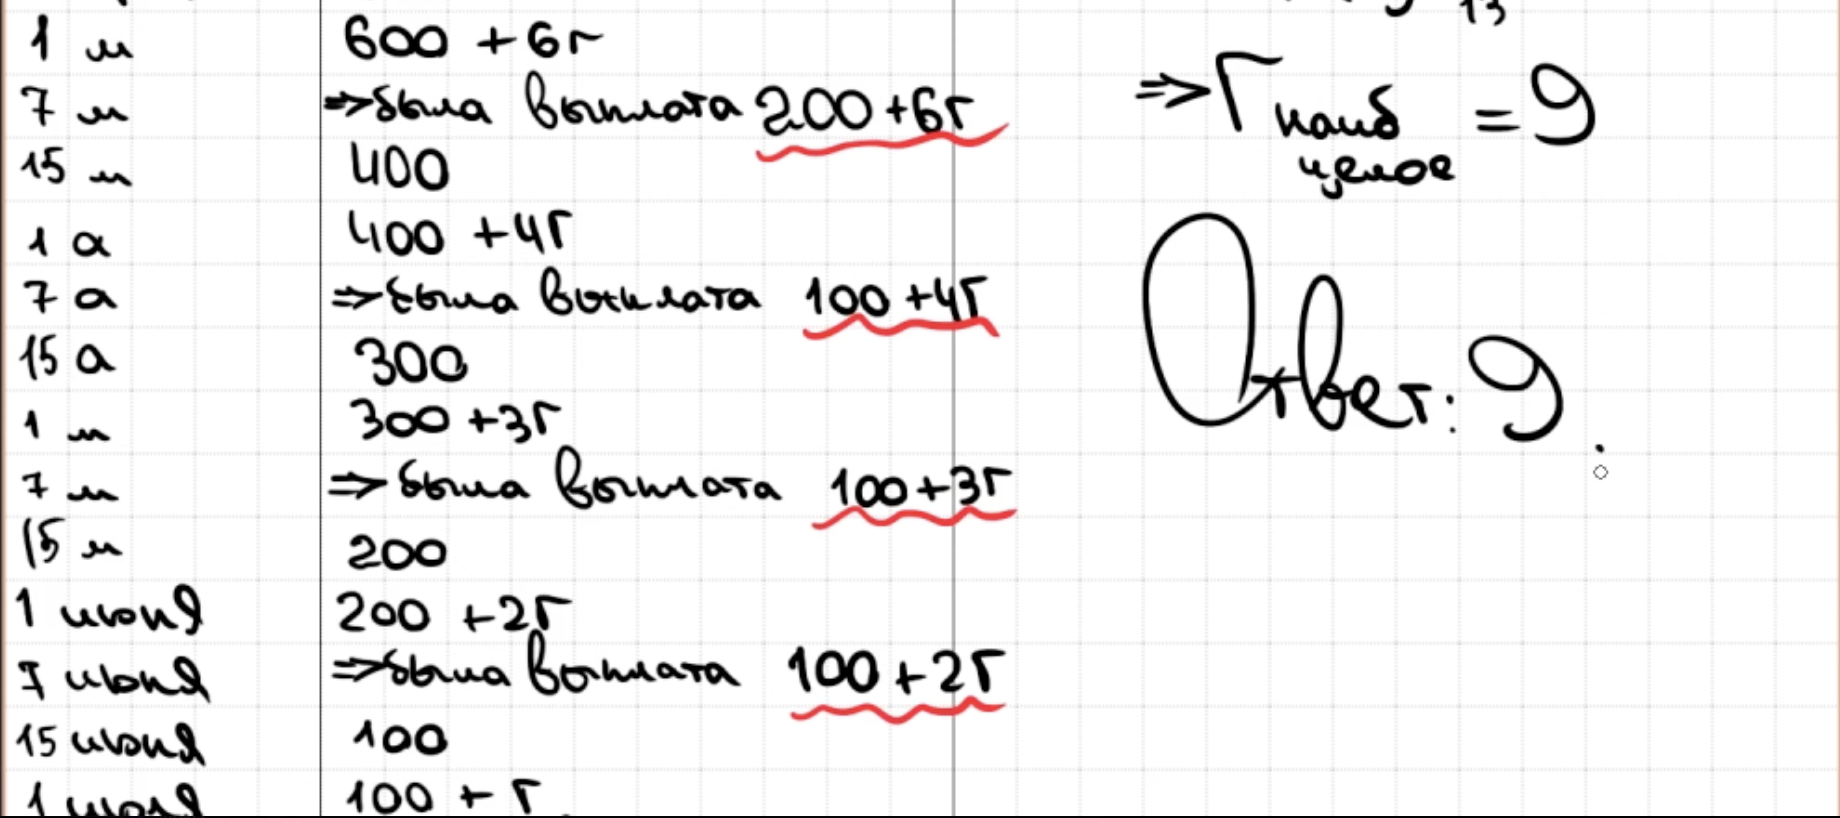 1 м 600 + 6г
7 м ⇒ была выплата 200 + 6г
15 м 400
1 а 400 + 4г
7 а ⇒ была выплата 100 + 4г
15 а 300
1 м 300 + 3г
7 м ⇒ была выплата 100 + 3г
15 м 200
1 июня 200 + 2г
7 июня ⇒ была выплата 100 + 2г
15 июня 100
1 июля 100 + г
13
⇒ г наиб = 9
целое
Ответ: 9.